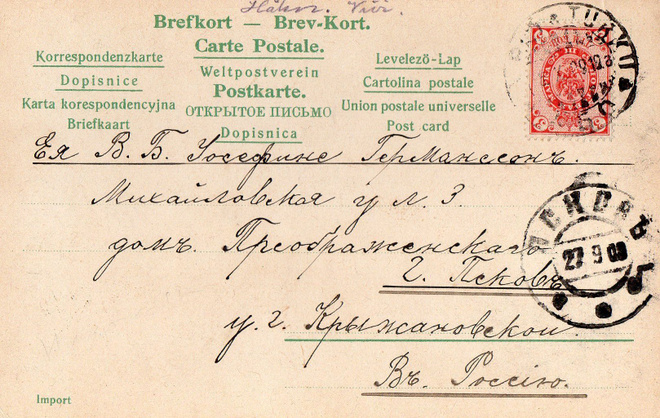 Brefkort — Brev-Kort.
Carte Postale.
Korrespondenzkarte
Dopisnice
Karta korespondencyjna
Briefkaart
Weltpostverein
Postkarte.
ОТКРЫТОЕ ПИСЬМО
Dopisnica
Levelező-Lap
Cartolina postale
Union postale universelle
Post card
Ея В. Б. Іосефинѣ Германссонъ.
Михайловская ул. 3
домъ Преображенскаго
г. Псковъ
у г. Крыжановской.
Въ Россію.
ПСКОВЪ
27 9 08
Import